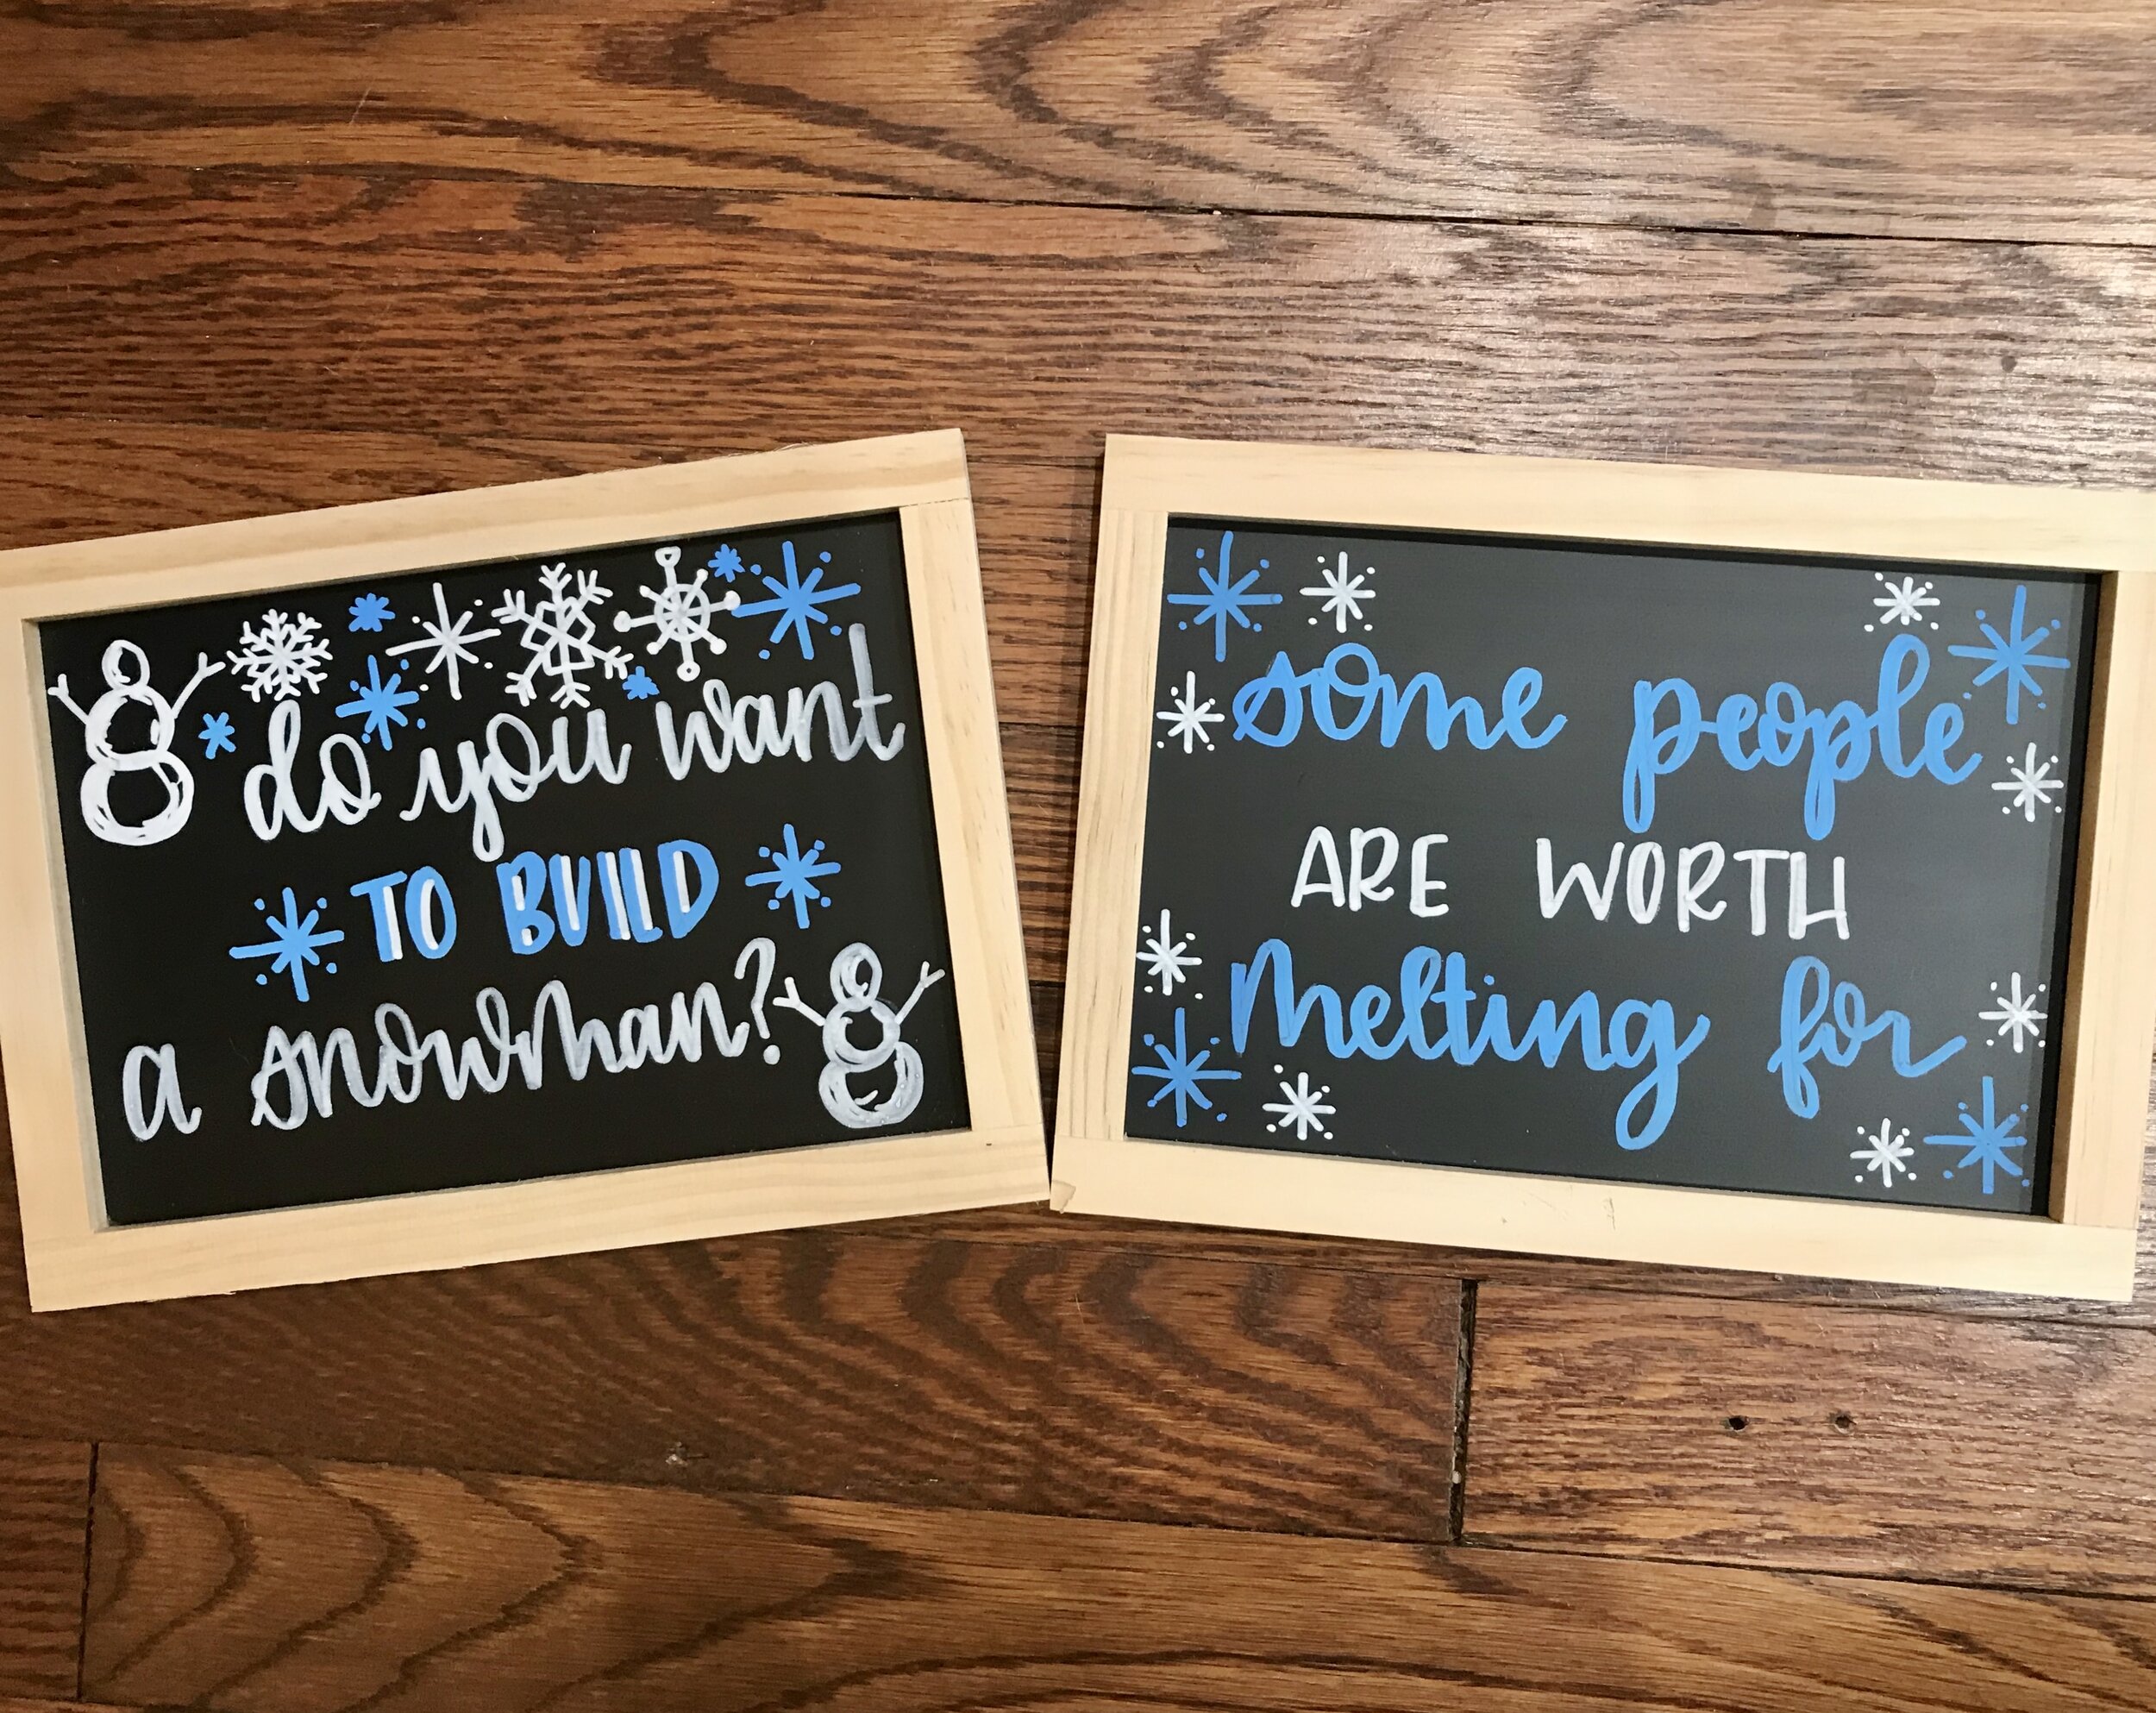 do you want
TO BUILD
a snowman?
some people
ARE WORTH
melting for